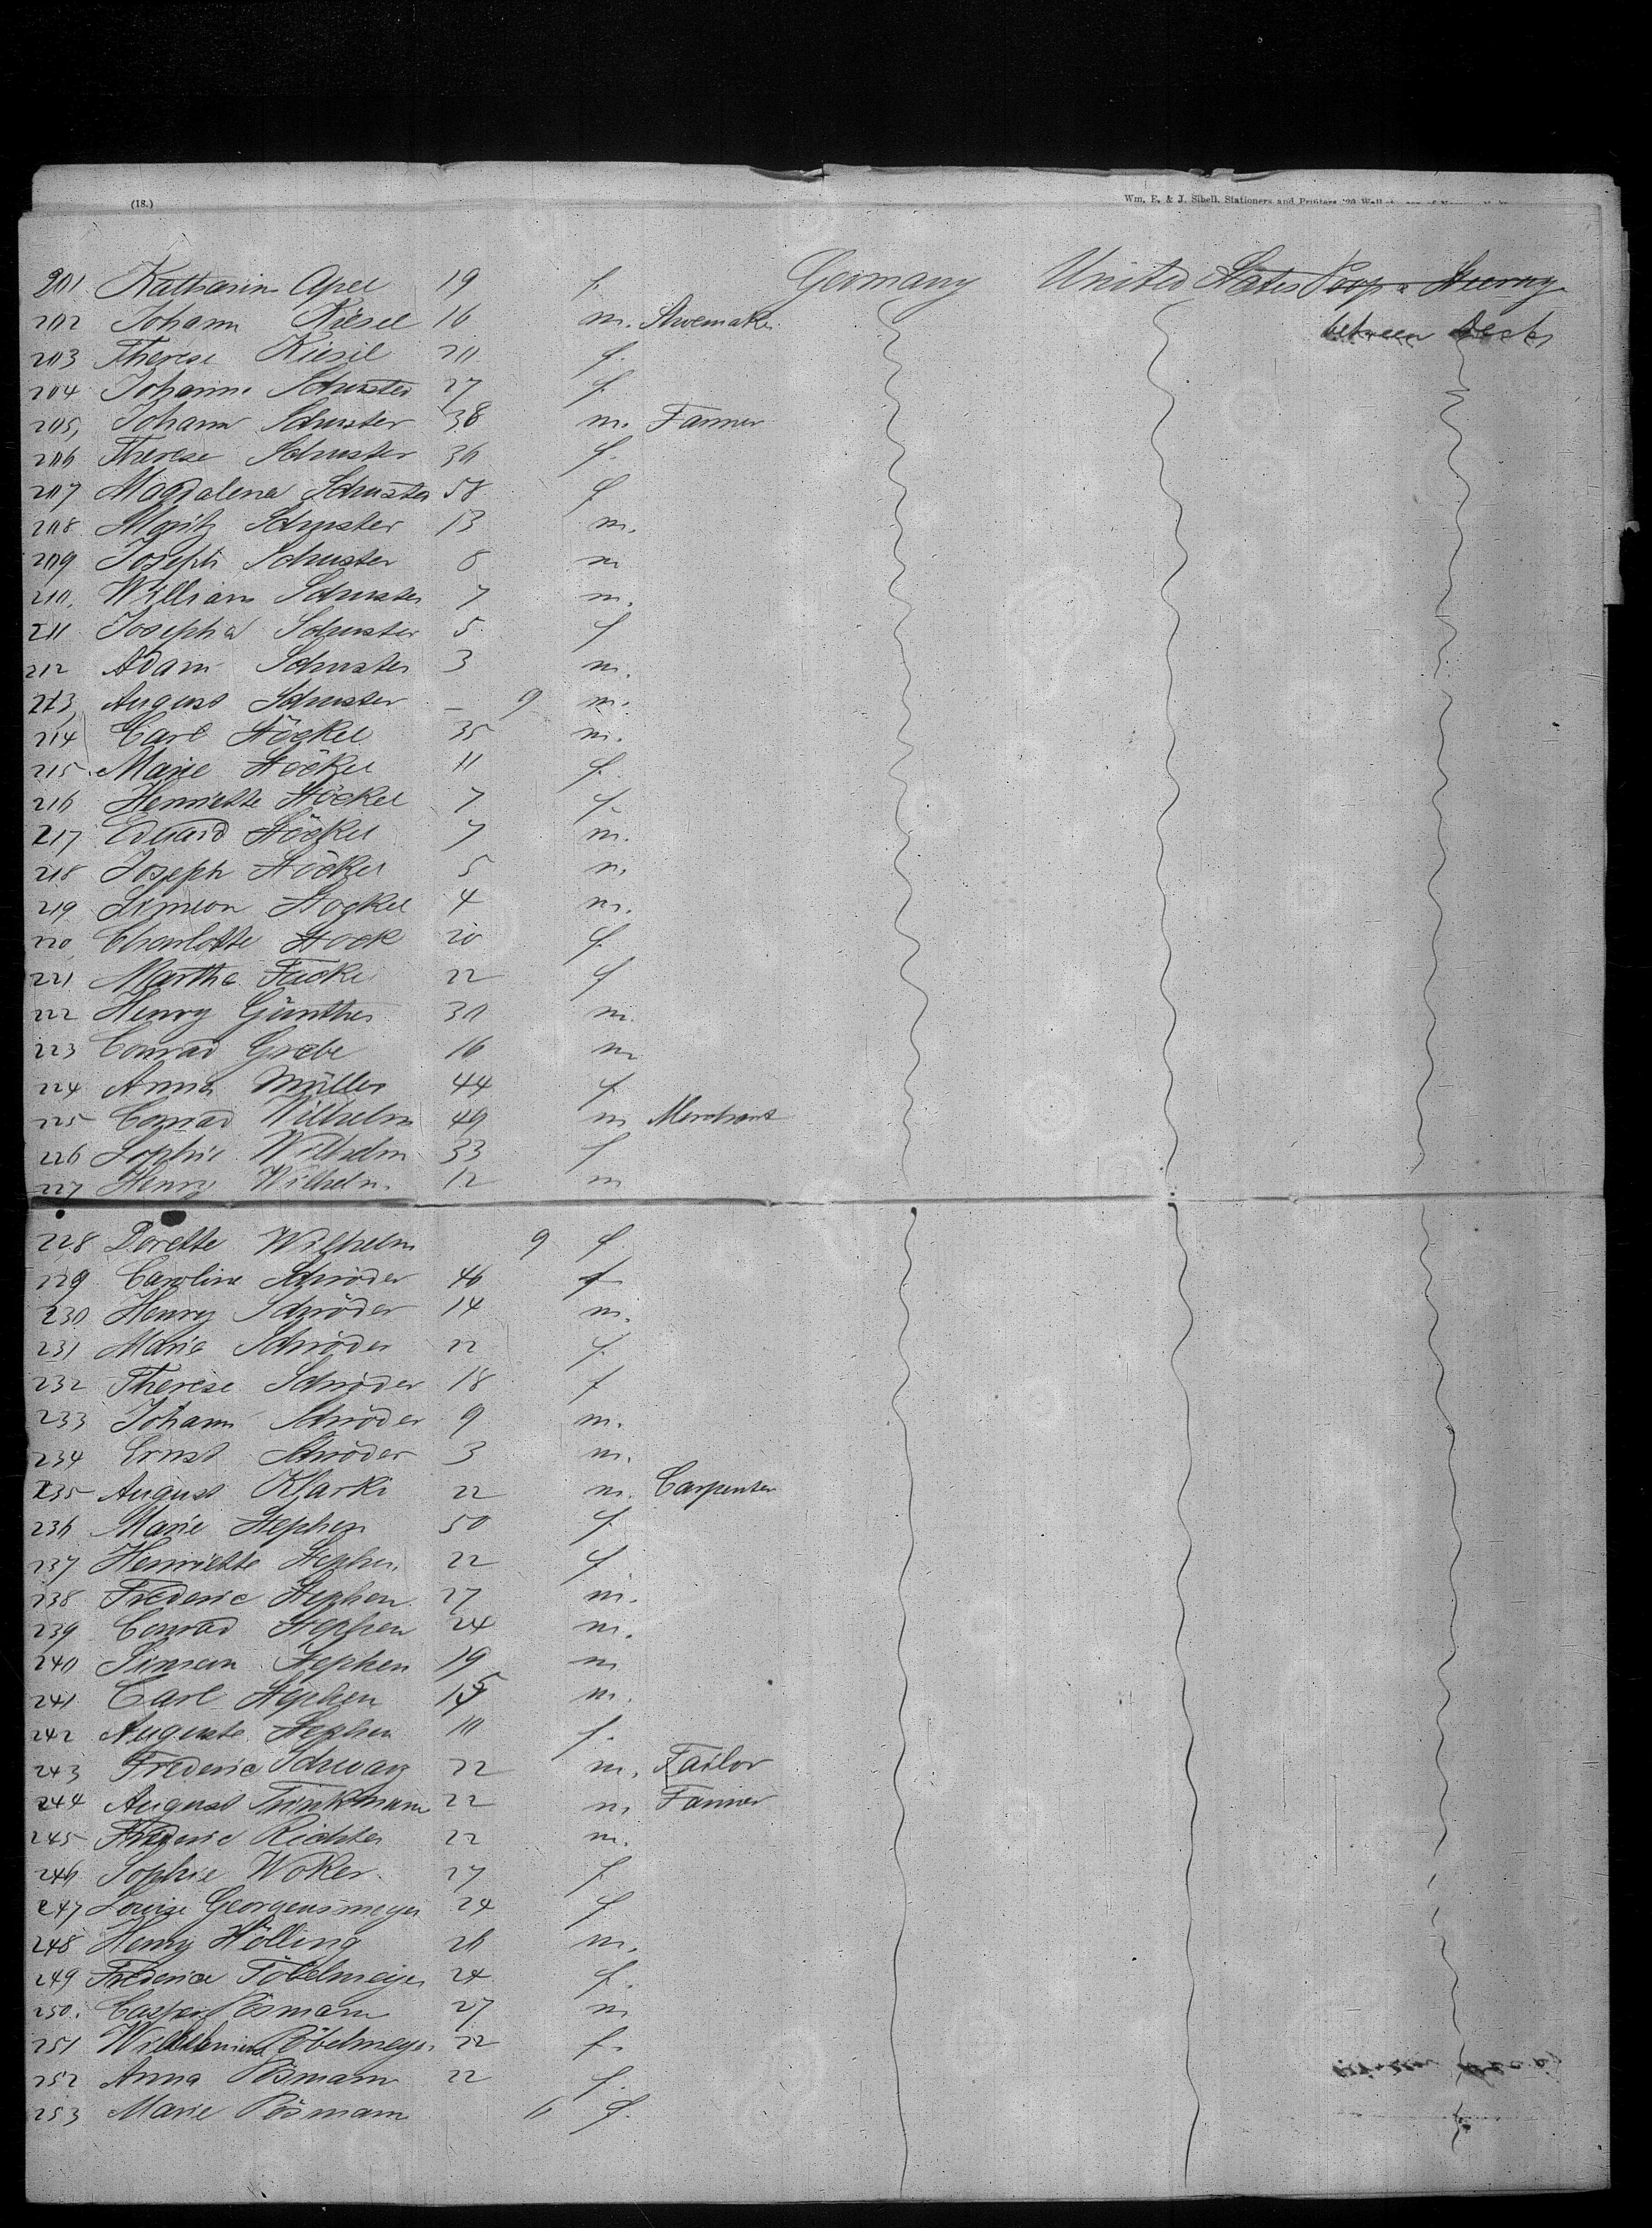 (18.)
Wm. E. & J. Sibell, Stationers and Printers
201 Katharin Apel 19 f. Germany United States Poop & Steerage
202 Johann Kiesel 16 m. Shoemaker between decks
203 Therese Kiesil 20 f.
204 Johanne Schuster 27 f.
205, Johann Schuster 38 m. Farmer
206 Therese Schuster 36 f.
207 Magdalena Schuster 58 f
208 Moritz Schuster 13 m.
209 Joseph Schuster 8 m
210. William Schuster 7 m.
211 Josepha Schuster 5 f
212 Adam Schuster 3 m.
213 August Schuster – 9 m.
214 Carl Höckel 35 m.
215. Marie Höckel 11 f.
216 Henriette Höckel 7 f.
217 Eduard Höckel 7 m.
218 Joseph Höckel 5 m.
219 Simeon Hockel 4 m.
220 Charlotte Hook 20 f.
221 Martha Facke 22 f
222 Henry Günther 30 m.
223 Conrad Grebe 16 m
224 Anna Müller 44 f.
225 Conrad Wilhelm 49 m Merchant
226 Sophie Wilhelm 33 f
227 Henry Wilhelm. 12 m
228 Dorette Wilhelm 9 f
229 Caroline Schröder 46 f
230 Henry Schröder 14 m.
231 Marie Schröder 22 f.
232 Therese Schröder 18 f
233 Johann Schröder 9 m.
234 Ernst Schröder 3 m.
235 August Klarki 22 m. Carpenter
236 Marie Stephen 50 f.
237 Henriette Stephen 22 f
238 Frederic Stephen 27 m.
239 Conrad Stephen 24 m.
240 Simeon Stephen 19 m
241 Carl Stephen 15 m.
242 Auguste Stephen 10 f.
243 Frederic Schwarz 22 m. Tailor
244 August Trinkmann 22 m Farmer
245 Frederic Richter 22 m.
246 Sophie Woker 27 f
247 Louise Georgensmeyer 24 f
248 Henry Hölling 26 m.
249 Frederica Pöbelmeyer 24 f.
250. Casper Pösmann 27 m
251 Wilhelmine Pöbelmeyer 22 f.
252 Anna Pösmann 22 f.
253 Marie Pösmann 6 f.